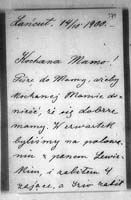 Łańcut. 14/10 1900.
Kochana Mamo!
Piszę do Mamy, ażeby
kochanej Mamie do-
nieść, że się dobrze
mamy. W czwartek
byliśmy na polowa-
niu z panem
i zabiłem 4
zające, a